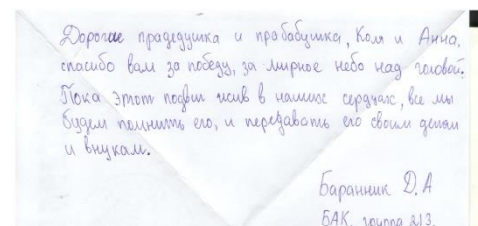 Дорогие прадедушка и прабабушка, Коля и Анна,
спасибо вам за победу, за мирное небо над головой.
Пока этот подвиг жив в наших сердцах, все мы
будем помнить его, и передавать его своим детям
и внукам.
Баранник Д.А
БАК, группа 213.